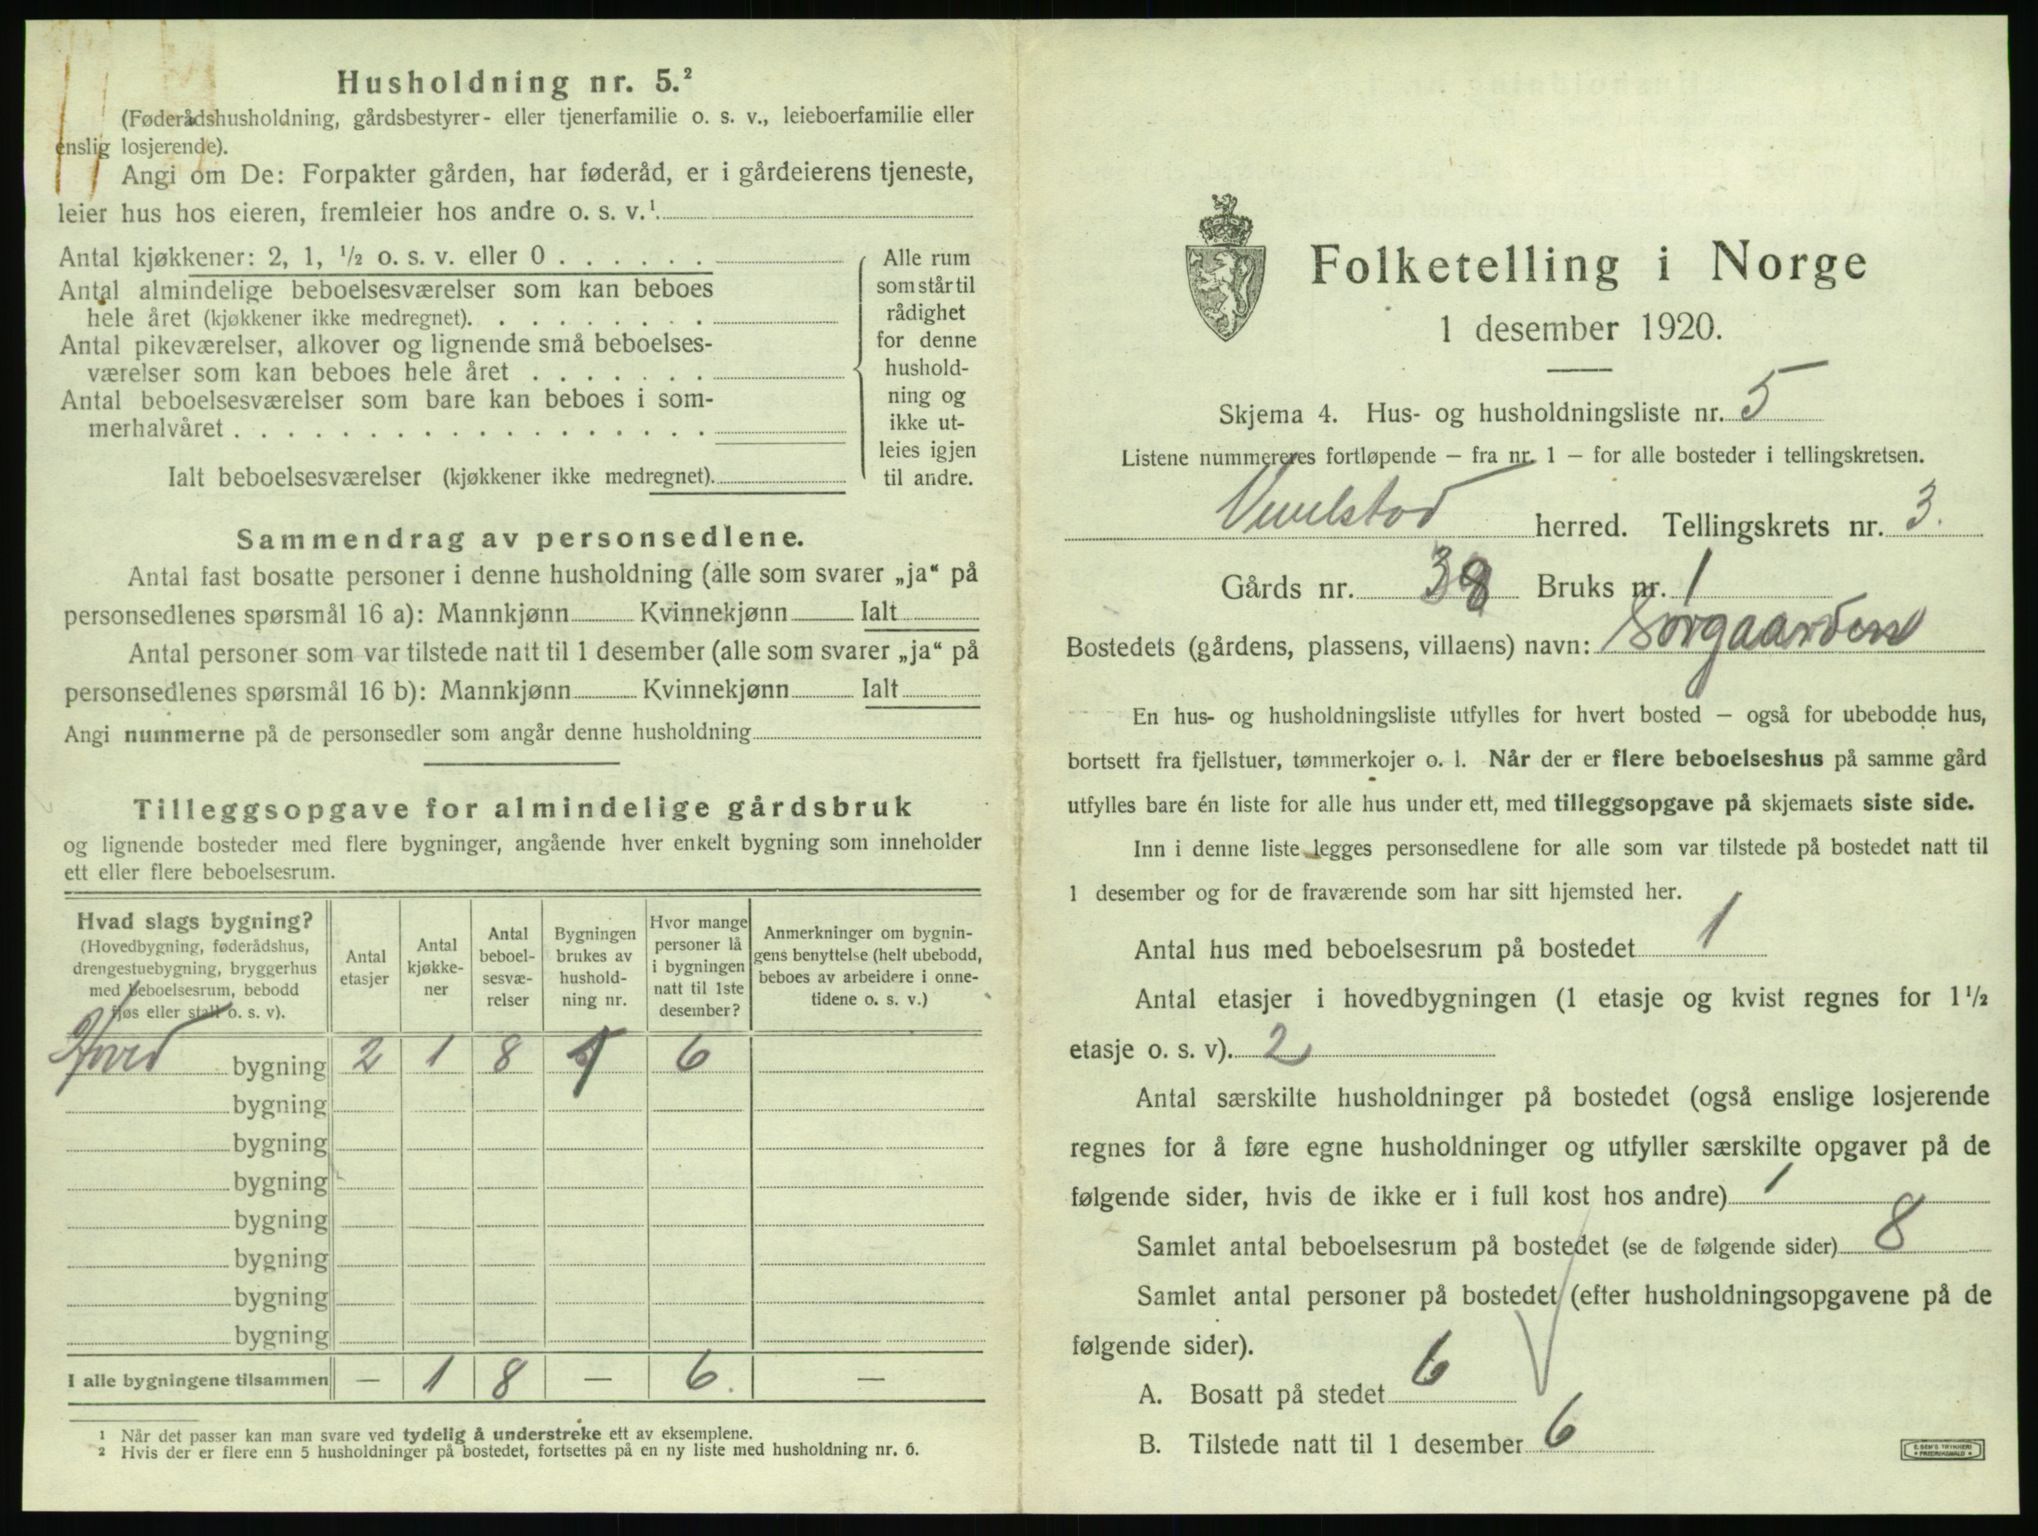 Husholdning nr. 5.²
(Føderådshusholdning, gårdsbestyrer- eller tjenerfamilie o. s. v., leieboerfamilie eller
enslig losjerende).
Angi om De: Forpakter gården, har føderåd, er i gårdeierens tjeneste,
leier hus hos eieren, fremleier hos andre o. s. v.¹
Antal kjøkkener: 2, 1, ½ o. s. v. eller 0 . . . . . .
Antal almindelige beboelsesværelser som kan beboes
hele året (kjøkkener ikke medregnet). . . . . . . . .
Antal pikeværelser, alkover og lignende små beboelses-
værelser som kan beboes hele året . . . . . . .
Antal beboelsesværelser som bare kan beboes i som-
merhalvåret . . . . . . . . . . . . . . . . . .
Ialt beboelsesværelser (kjøkkener ikke medregnet).
Alle rum
som står til
rådighet
for denne
hushold-
ning og
ikke ut-
leies igjen
til andre.
Sammendrag av personsedlene.
Antal fast bosatte personer i denne husholdning (alle som svarer „ja“ på
personsedlenes spørsmål 16 a): Mannkjønn Kvinnekjønn Ialt
Antal personer som var tilstede natt til 1 desember (alle som svarer „ja“ på
personsedlenes spørsmål 16 b): Mannkjønn Kvinnekjønn Ialt
Angi nummerne på de personsedler som angår denne husholdning
Tilleggsopgave for almindelige gårdsbruk
og lignende bosteder med flere bygninger, angående hver enkelt bygning som inneholder
ett eller flere beboelsesrum.
Hvad slags bygning?
(Hovedbygning, føderådshus,
drengestuebygning, bryggerhus
med beboelsesrum, bebodd
fjøs eller stall o. s. v).
Antal
etasjer
Antal
kjøkke-
ner
Antal
beboel-
sesvæ-
relser
Bygningen
brukes av
hushold-
ning nr.
Hvor mange
personer lå
i bygningen
natt til 1ste
desember?
Anmerkninger om bygnin-
gens benyttelse (helt ubebodd,
beboes av arbeidere i onne-
tidene o. s. v.)
Hoved bygning 2 1 8 1 6
bygning
bygning
bygning
bygning
bygning
bygning
bygning
I alle bygningene tilsammen — 1 8 — 6. —
¹ Når det passer kan man svare ved tydelig å understreke ett av eksemplene.
² Hvis der er flere enn 5 husholdninger på bostedet, fortsettes på en ny liste med husholdning nr. 6.
Folketelling i Norge
1 desember 1920.
Skjema 4. Hus- og husholdningsliste nr. 5
Listene nummereres fortløpende — fra nr. 1 — for alle bosteder i tellingskretsen.
Vevelstad herred. Tellingskrets nr. 3.
Gårds nr. 38 Bruks nr. 1
Bostedets (gårdens, plassens, villaens) navn: Sørgaarden
En hus- og husholdningsliste utfylles for hvert bosted — også for ubebodde hus,
bortsett fra fjellstuer, tømmerkojer o. l. Når der er flere beboelseshus på samme gård
utfylles bare én liste for alle hus under ett, med tilleggsopgave på skjemaets siste side.
Inn i denne liste legges personsedlene for alle som var tilstede på bostedet natt til
1 desember og for de fraværende som har sitt hjemsted her.
Antal hus med beboelsesrum på bostedet 1
Antal etasjer i hovedbygningen (1 etasje og kvist regnes for 1½
etasje o. s. v). 2
Antal særskilte husholdninger på bostedet (også enslige losjerende
regnes for å føre egne husholdninger og utfyller særskilte opgaver på de
følgende sider, hvis de ikke er i full kost hos andre) 1
Samlet antal beboelsesrum på bostedet (se de følgende sider) 8
Samlet antal personer på bostedet (efter husholdningsopgavene på de
følgende sider).
A. Bosatt på stedet 6
B. Tilstede natt til 1 desember 6